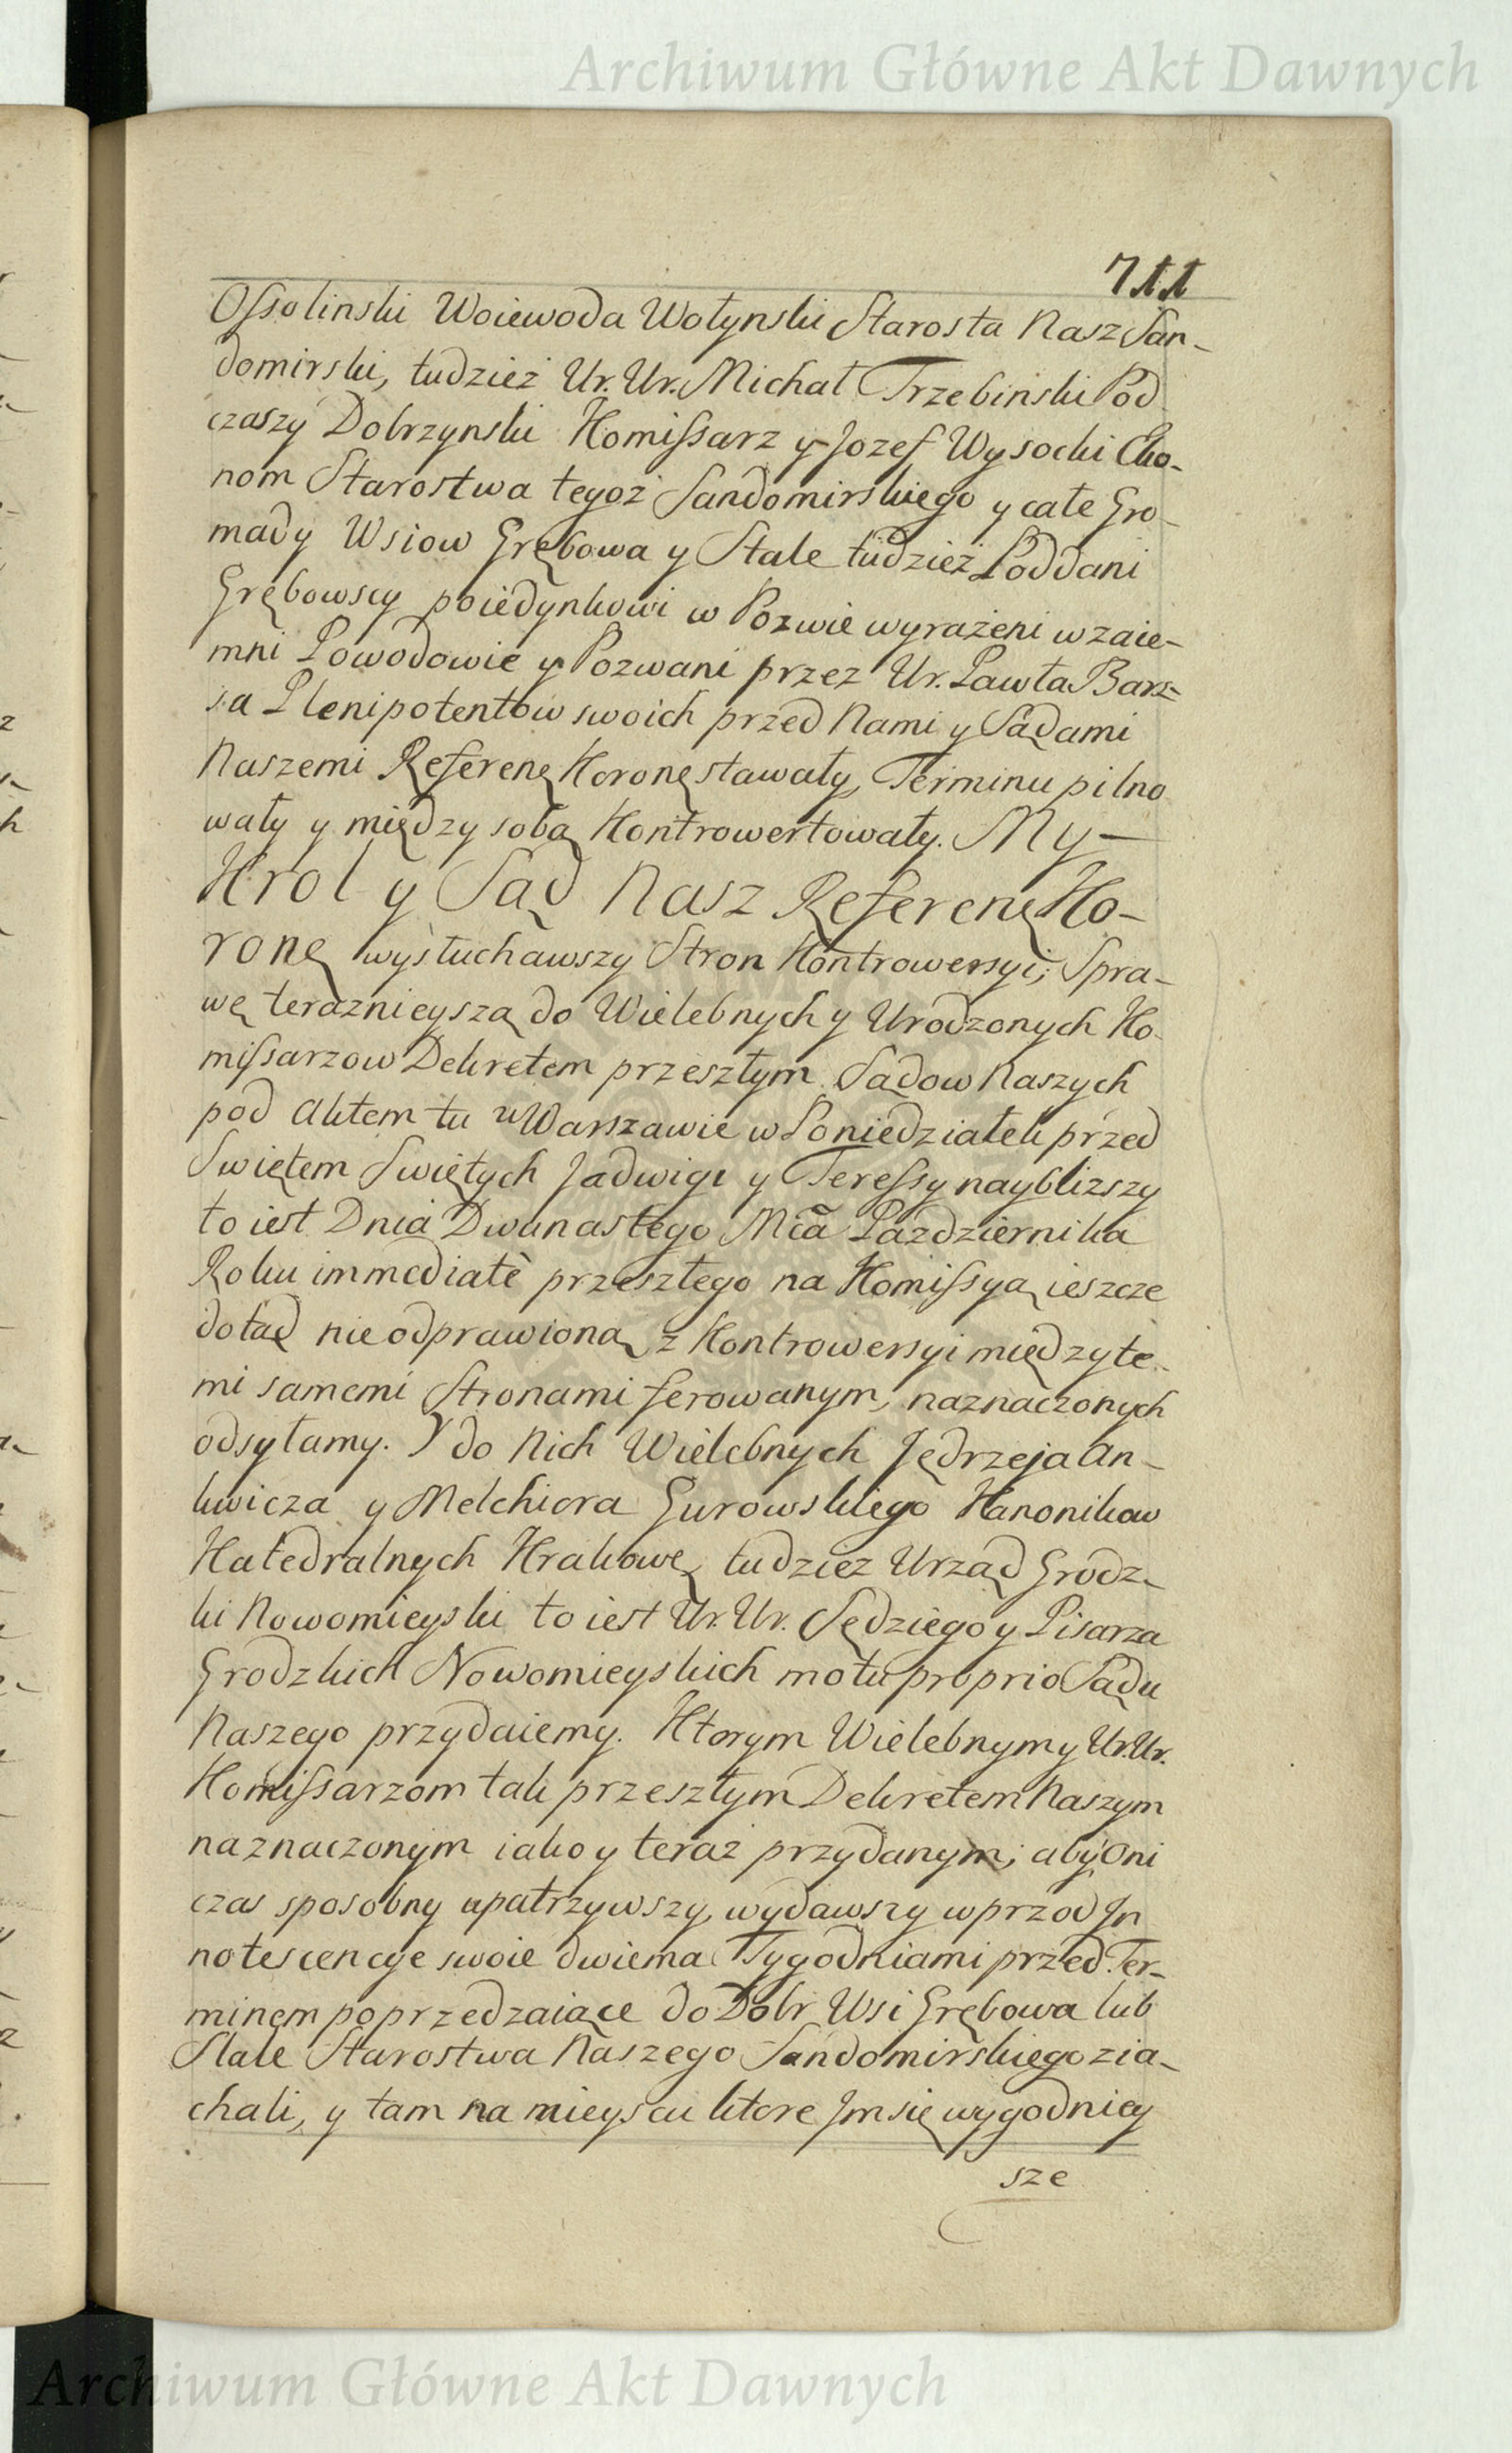 Archiwum Główne Akt Dawnych
711
Ossolinski Woiewoda Wołynski Starosta Nasz San-
domirski, tudzież Ur. Ur. Michał Trzebinski Pod
czaszy Dobrzynski Komissarz y Jozef Wysocki Eko-
nom Starostwa tegoż Sandomirskiego y całe Gro-
mady Wsiow Grębowa y Stale tudzież Poddani
Grębowscy poiedynkowi w Pozwie wyrażeni wzaie-
mni Powodowie y Pozwani przez Ur. Pawła Bars-
sa Plenipotentow swoich przed Nami y Sądami
Naszemi Referenę Koronę stawały, Terminu pilno
wały y między sobą Kontrowertowały. My-
Krol y Sąd Nasz Referenę Ko-
ronę wysłuchawszy Stron Kontrowersyi; Spra-
wę teraznieyszą do Wielebnych y Urodzonych Ko-
missarzow Dekretem przeszłym Sądow Naszych
pod Aktem tu w Warszawie w Poniedziałek przed
Swiętem Swiętych Jadwigi y Teressy naybliższy
to iest Dnia Dwunastego Mca Pazdziernika
Roku immediatè przeszłego na Komissyą ieszcze
dotąd nieodprawioną z Kontrowersyi między te-
mi samemi Stronami ferowanym, naznaczonych
odsyłamy. Y do Nich Wielebnych Jędrzeja An-
kwicza y Melchiora Gurowskiego Kanonikow
Katedralnych Krakowę tudziez Urząd Grodz-
ki Nowomieyski to iest Ur. Ur. Sędziego y Pisarza
Grodzkich Nowomieyskich motu proprio Sądu
Naszego przydaiemy. Ktorym Wielebnym y Ur. Ur.
Komissarzom tak przeszłym Dekretem Naszym
naznaczonym iako y teraz przydanym; aby Oni
czas sposobny upatrzywszy, wydawszy wprzod In
notescencye swoie dwiema Tygodniami przed Ter-
minem poprzedzaiące do Dobr Wsi Grębowa lub
Stale Starostwa Naszego Sandomirskiego zia-
chali, y tam na mieyscu ktore Im się wygodniey
sze
Archiwum Główne Akt Dawnych